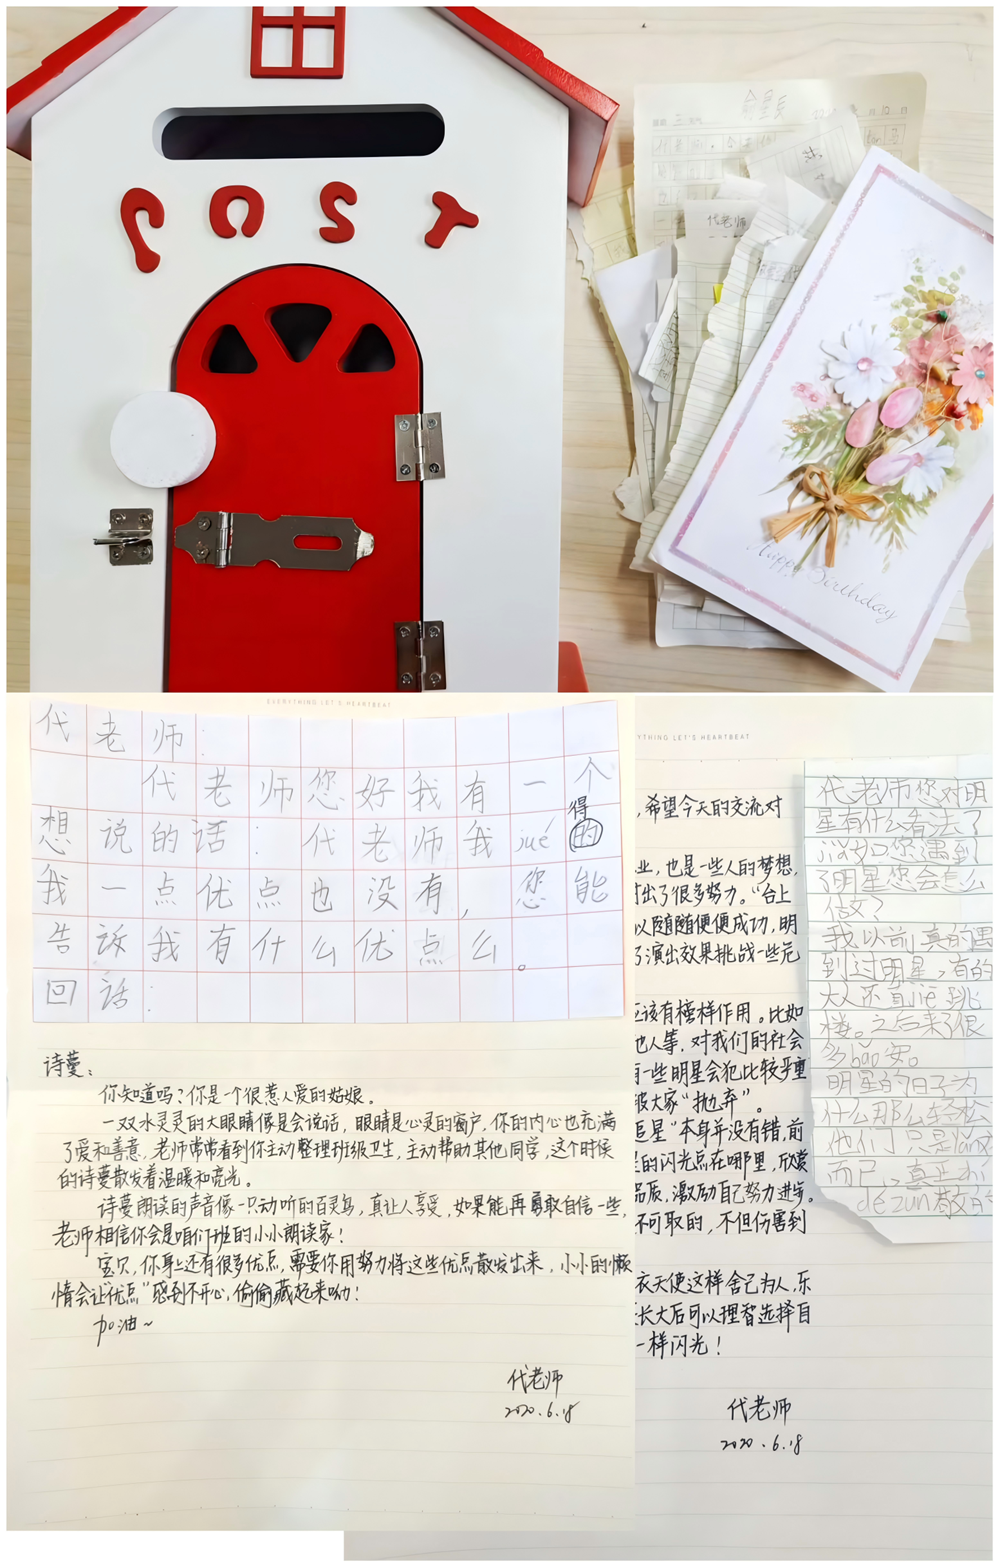 POST
代老师
Happy Birthday
EVERYTHING LET'S HEARTBEAT
代老师:
代老师您好我有一个
想说的话:代老师我jué得的
我一点优点也没有,您能
告诉我有什么优点么。
回话:
诗蔓:
你知道吗?你是一个很惹人爱的姑娘。
一双水灵灵的大眼睛像是会说话,眼睛是心灵的窗户,你的内心也充满
了爱和善意,老师常常看到你主动整理班级卫生,主动帮助其他同学,这个时候
的诗蔓散发着温暖和亮光。
诗蔓朗读的声音像一只动听的百灵鸟,真让人享受,如果能再勇敢自信一些,
老师相信你会是咱们班的小小朗读家!
宝贝,你身上还有很多优点,需要你用努力将这些优点散发出来,小小的懒
惰会让优点“感到不开心,偷偷藏起来呦!
加油~
代老师
2020.6.18
YTHING LET'S HEARTBEAT
,希望今天的交流对
业,也是一些人的梦想,
付出了很多努力。“台上
以随随便便成功,明
了演出效果挑战一些危
应该有榜样作用。比如
他人等,对我们的社会
有一些明星会犯比较严重
被大家“抛弃”。
追星”本身并没有错,前
星的闪光点在哪里,欣赏
品质,激励自己努力进步。
不可取的,不但伤害到
衣天使这样舍己为人,乐
长大后可以理智选择自
一样闪光!
代老师
2020.6.18
代老师您对明
星有什么看法了
jiǎ如您遇到
了明星您会怎么
做?
我以前真的遇
到过明星,有的
大人还直jiē跳
楼。之后来了很
多bǎo安。
明星的日子为
什么那么轻松
他们只是
而已,真正
de zūn敬的